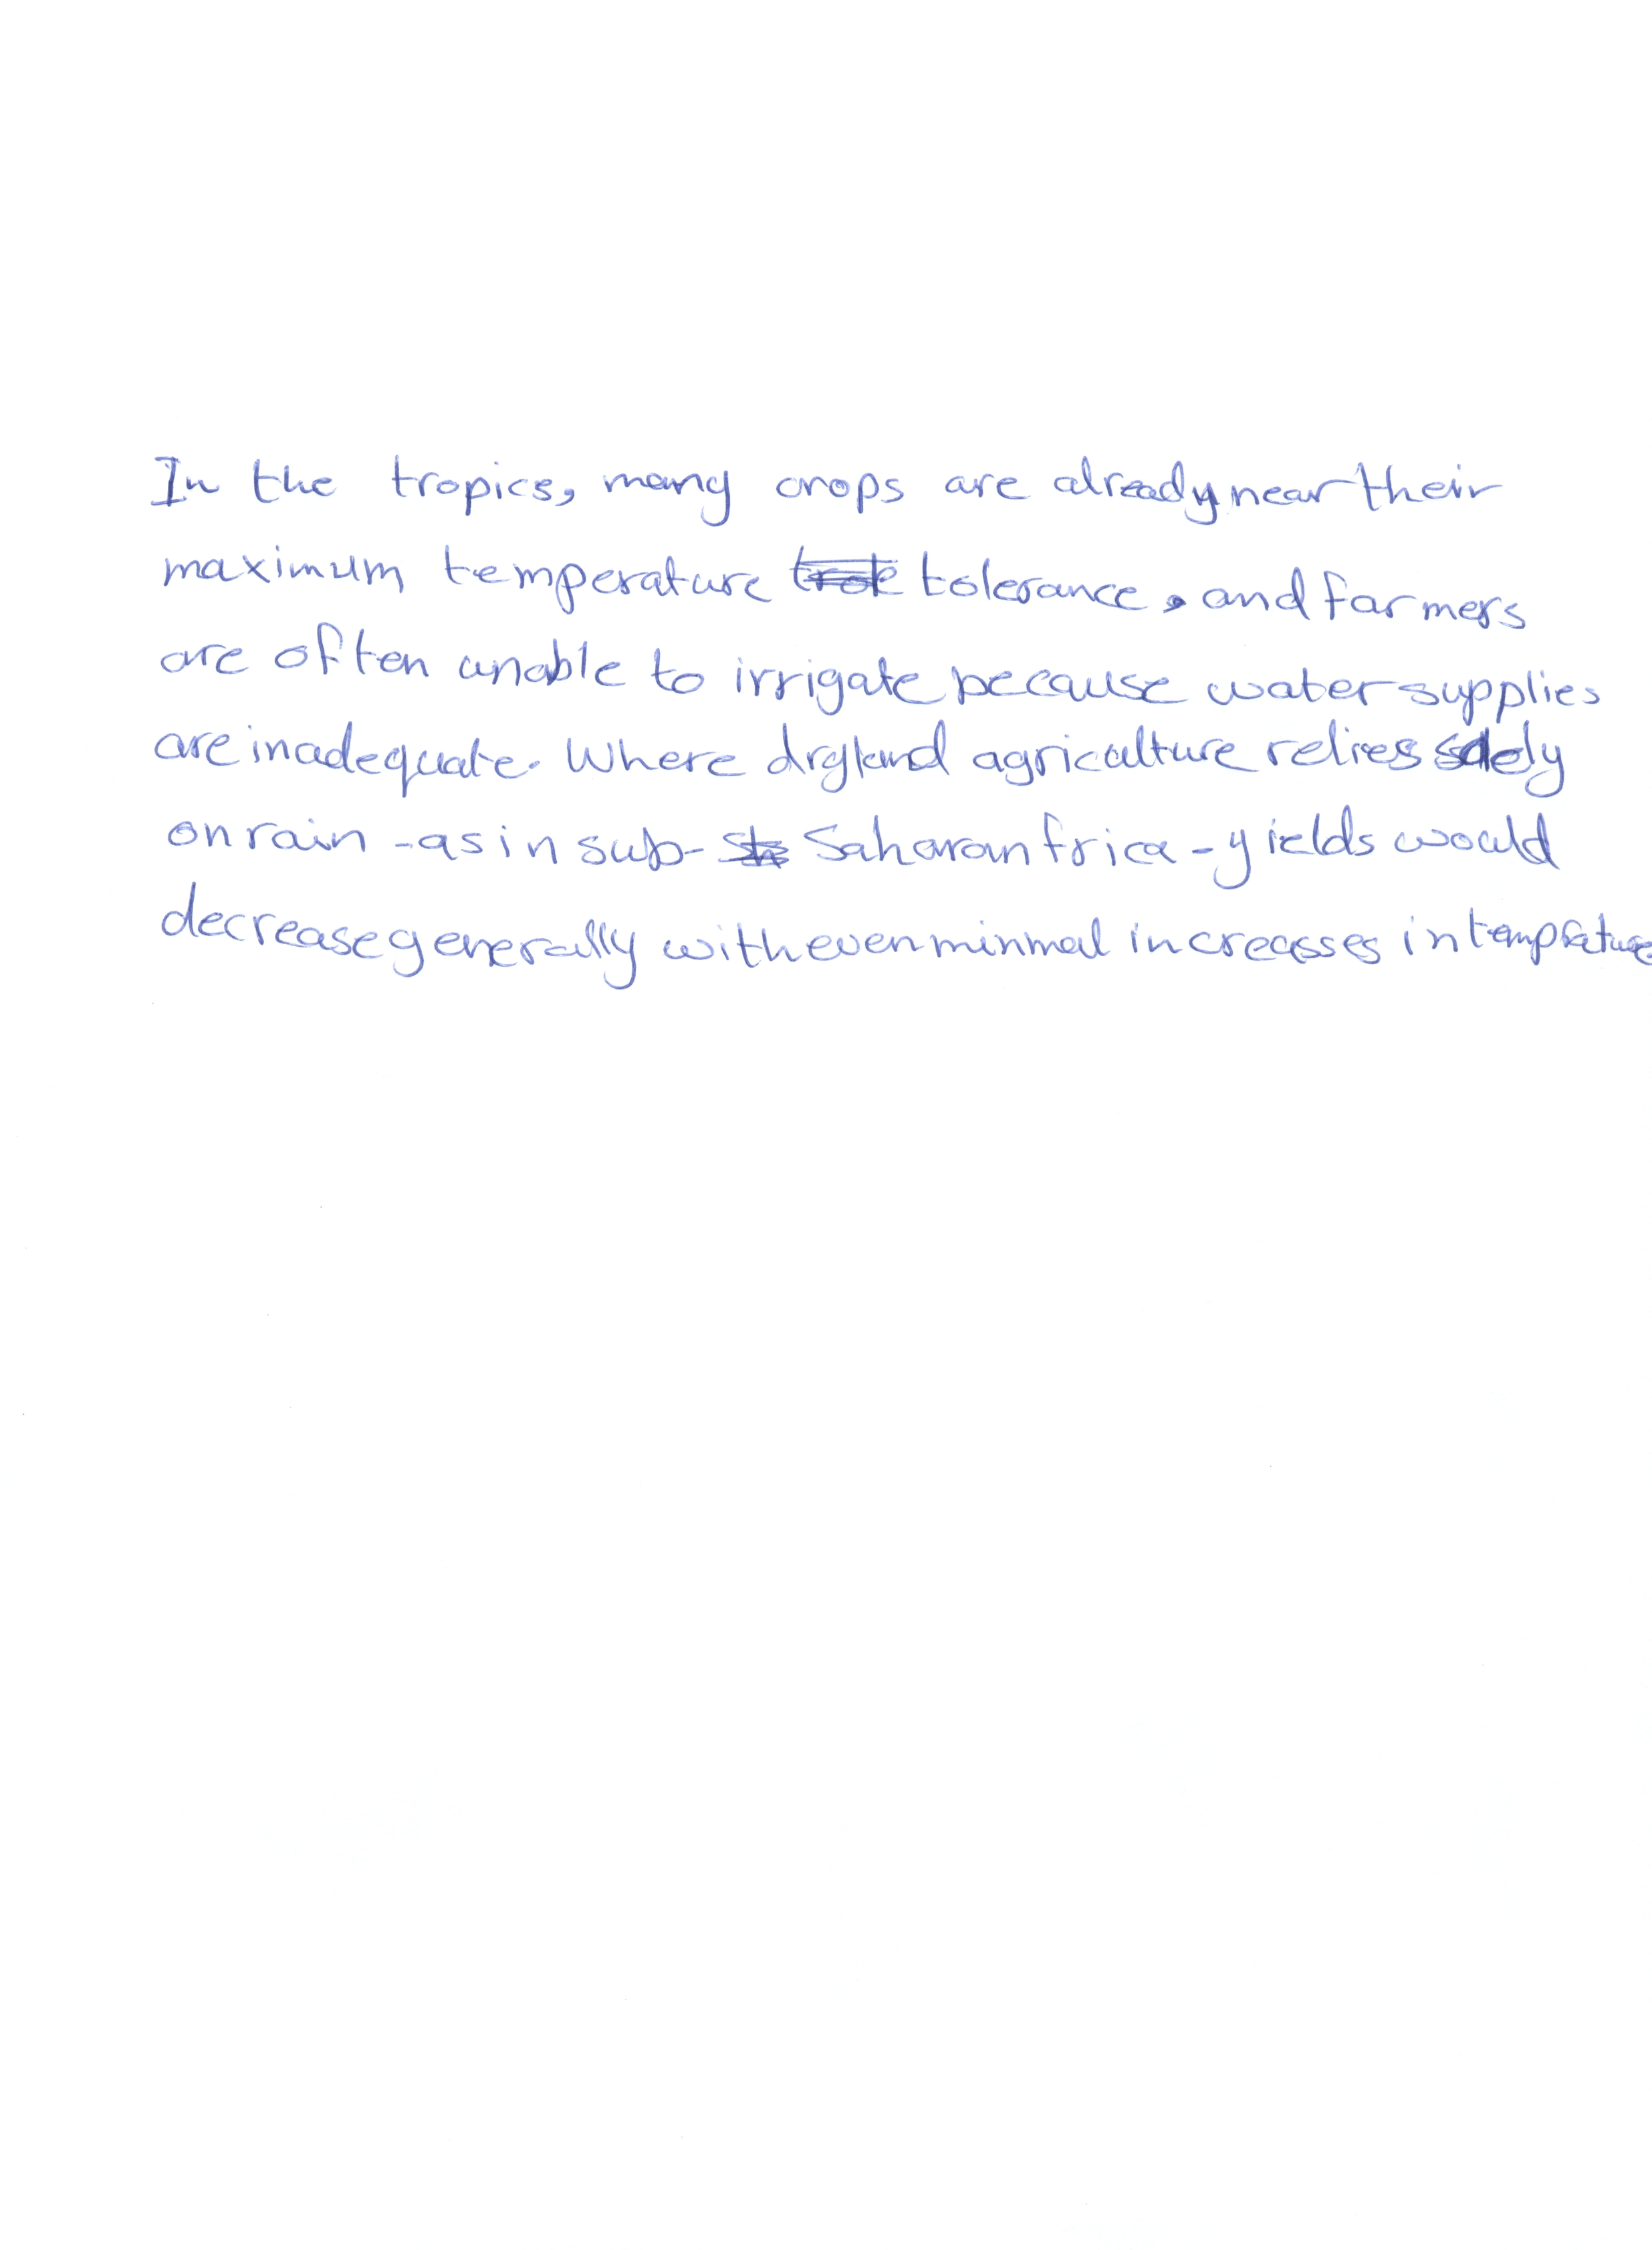 In the tropics, many crops are already near their
maximum temperature tolerance, and farmers
are often unable to irrigate because water supplies
are inadequate. Where dryland agriculture relies solely
on rain - as in sub- Saharan frica - yields would
decrease generally with even minmal increasses in temprature